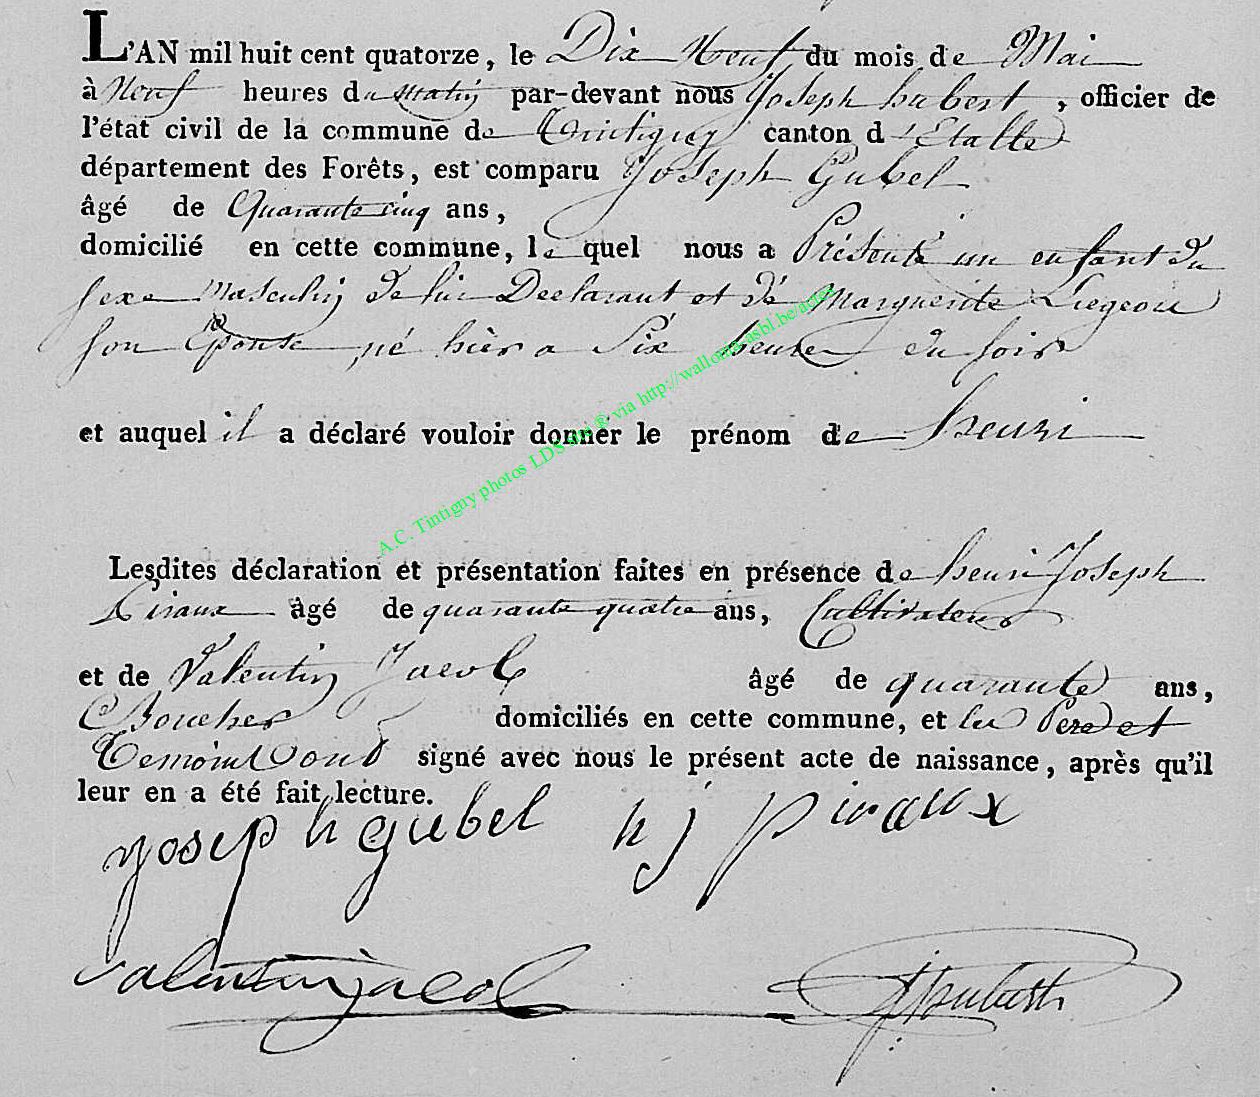 L'AN mil huit cent quatorze, le Dix Neuf du mois de Mai
à Neuf heures du matin par-devant nous Joseph hubert, officier de
l'état civil de la commune de Tintigny canton d'Etalle
département des Forêts, est comparu Joseph Gubel
âgé de Quarante cinq ans,
domicilié en cette commune, le quel nous a Présenté un enfant du
sexe masculin de lui Declarant et de Marguerite Liegeois
son Epouse né hièr a Six heures du soir
et auquel il a déclaré vouloir donner le prénom de henri
A.C. Tintigny photos LDS site ® via http://wallonia-asbl.be/actes
Lesdites déclaration et présentation faites en présence de henri Joseph
Piraux âgé de quarante quatre ans, Cultivateur
et de Valentin Jacob âgé de quarante ans,
Boucher domiciliés en cette commune, et les Pere et
Temoins ont signé avec nous le présent acte de naissance, après qu'il
leur en a été fait lecture.
joseph gubel h j piraux
valentin jacob Jhubert